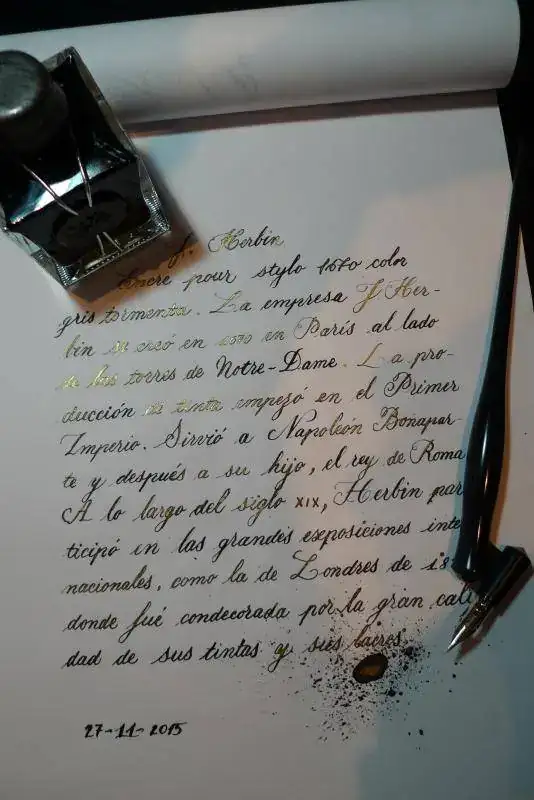 J. Herbin
Encre pour stylo 1670 color
gris tormenta. La empresa J Her-
bin se creó en 1670 en París al lado
de las torres de Notre-Dame. La pro-
ducción de tinta empezó en el Primer
Imperio. Sirvió a Napoleón Bonapar-
te y después a su hijo, el rey de Roma
A lo largo del siglo XIX, Herbin par
ticipó en las grandes exposiciones inte
nacionales, como la de Londres de 18
donde fué condecorada por la gran cali
dad de sus tintas y sus lacres
27-11-2015